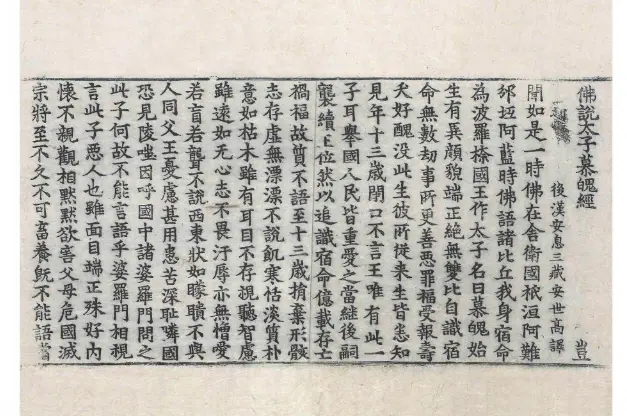 佛說太子慕魄經 豈
後漢安息三藏安世高譯
聞如是一時佛在舍衛國祇洹阿難
邠坻阿藍時佛語諸比丘我身宿命
為波羅㮈國王作太子名曰慕魄始
生有異顏貌端正絕無雙比自識宿
命無數劫事所更善惡罪福受報壽
夭好醜沒此生彼所從来生皆悉知
見年十三歲閇口不言王唯有此一
子耳舉國人民皆重愛之當継後嗣
襲續王位然以追識宿命億載存亡
禍福故質不語至十三歲捐棄形骸
志存虛無漂漂不說飢寒恬淡質朴
意如枯木雖有耳目不存視聽智慮
雖遠如无心志不畏汙辱亦無憎愛
若盲若聾不說西東狀如矇聵不與
人同父王憂慮甚用患苦深恥隣國
恐見陵唑因呼國中諸婆羅門問之
此子何故不能言語乎婆羅門相視
言此子惡人也雖面目端正殊好內
懷不親觀相默默欲害父母危國滅
宗將至不久不可畜養旣不能語當